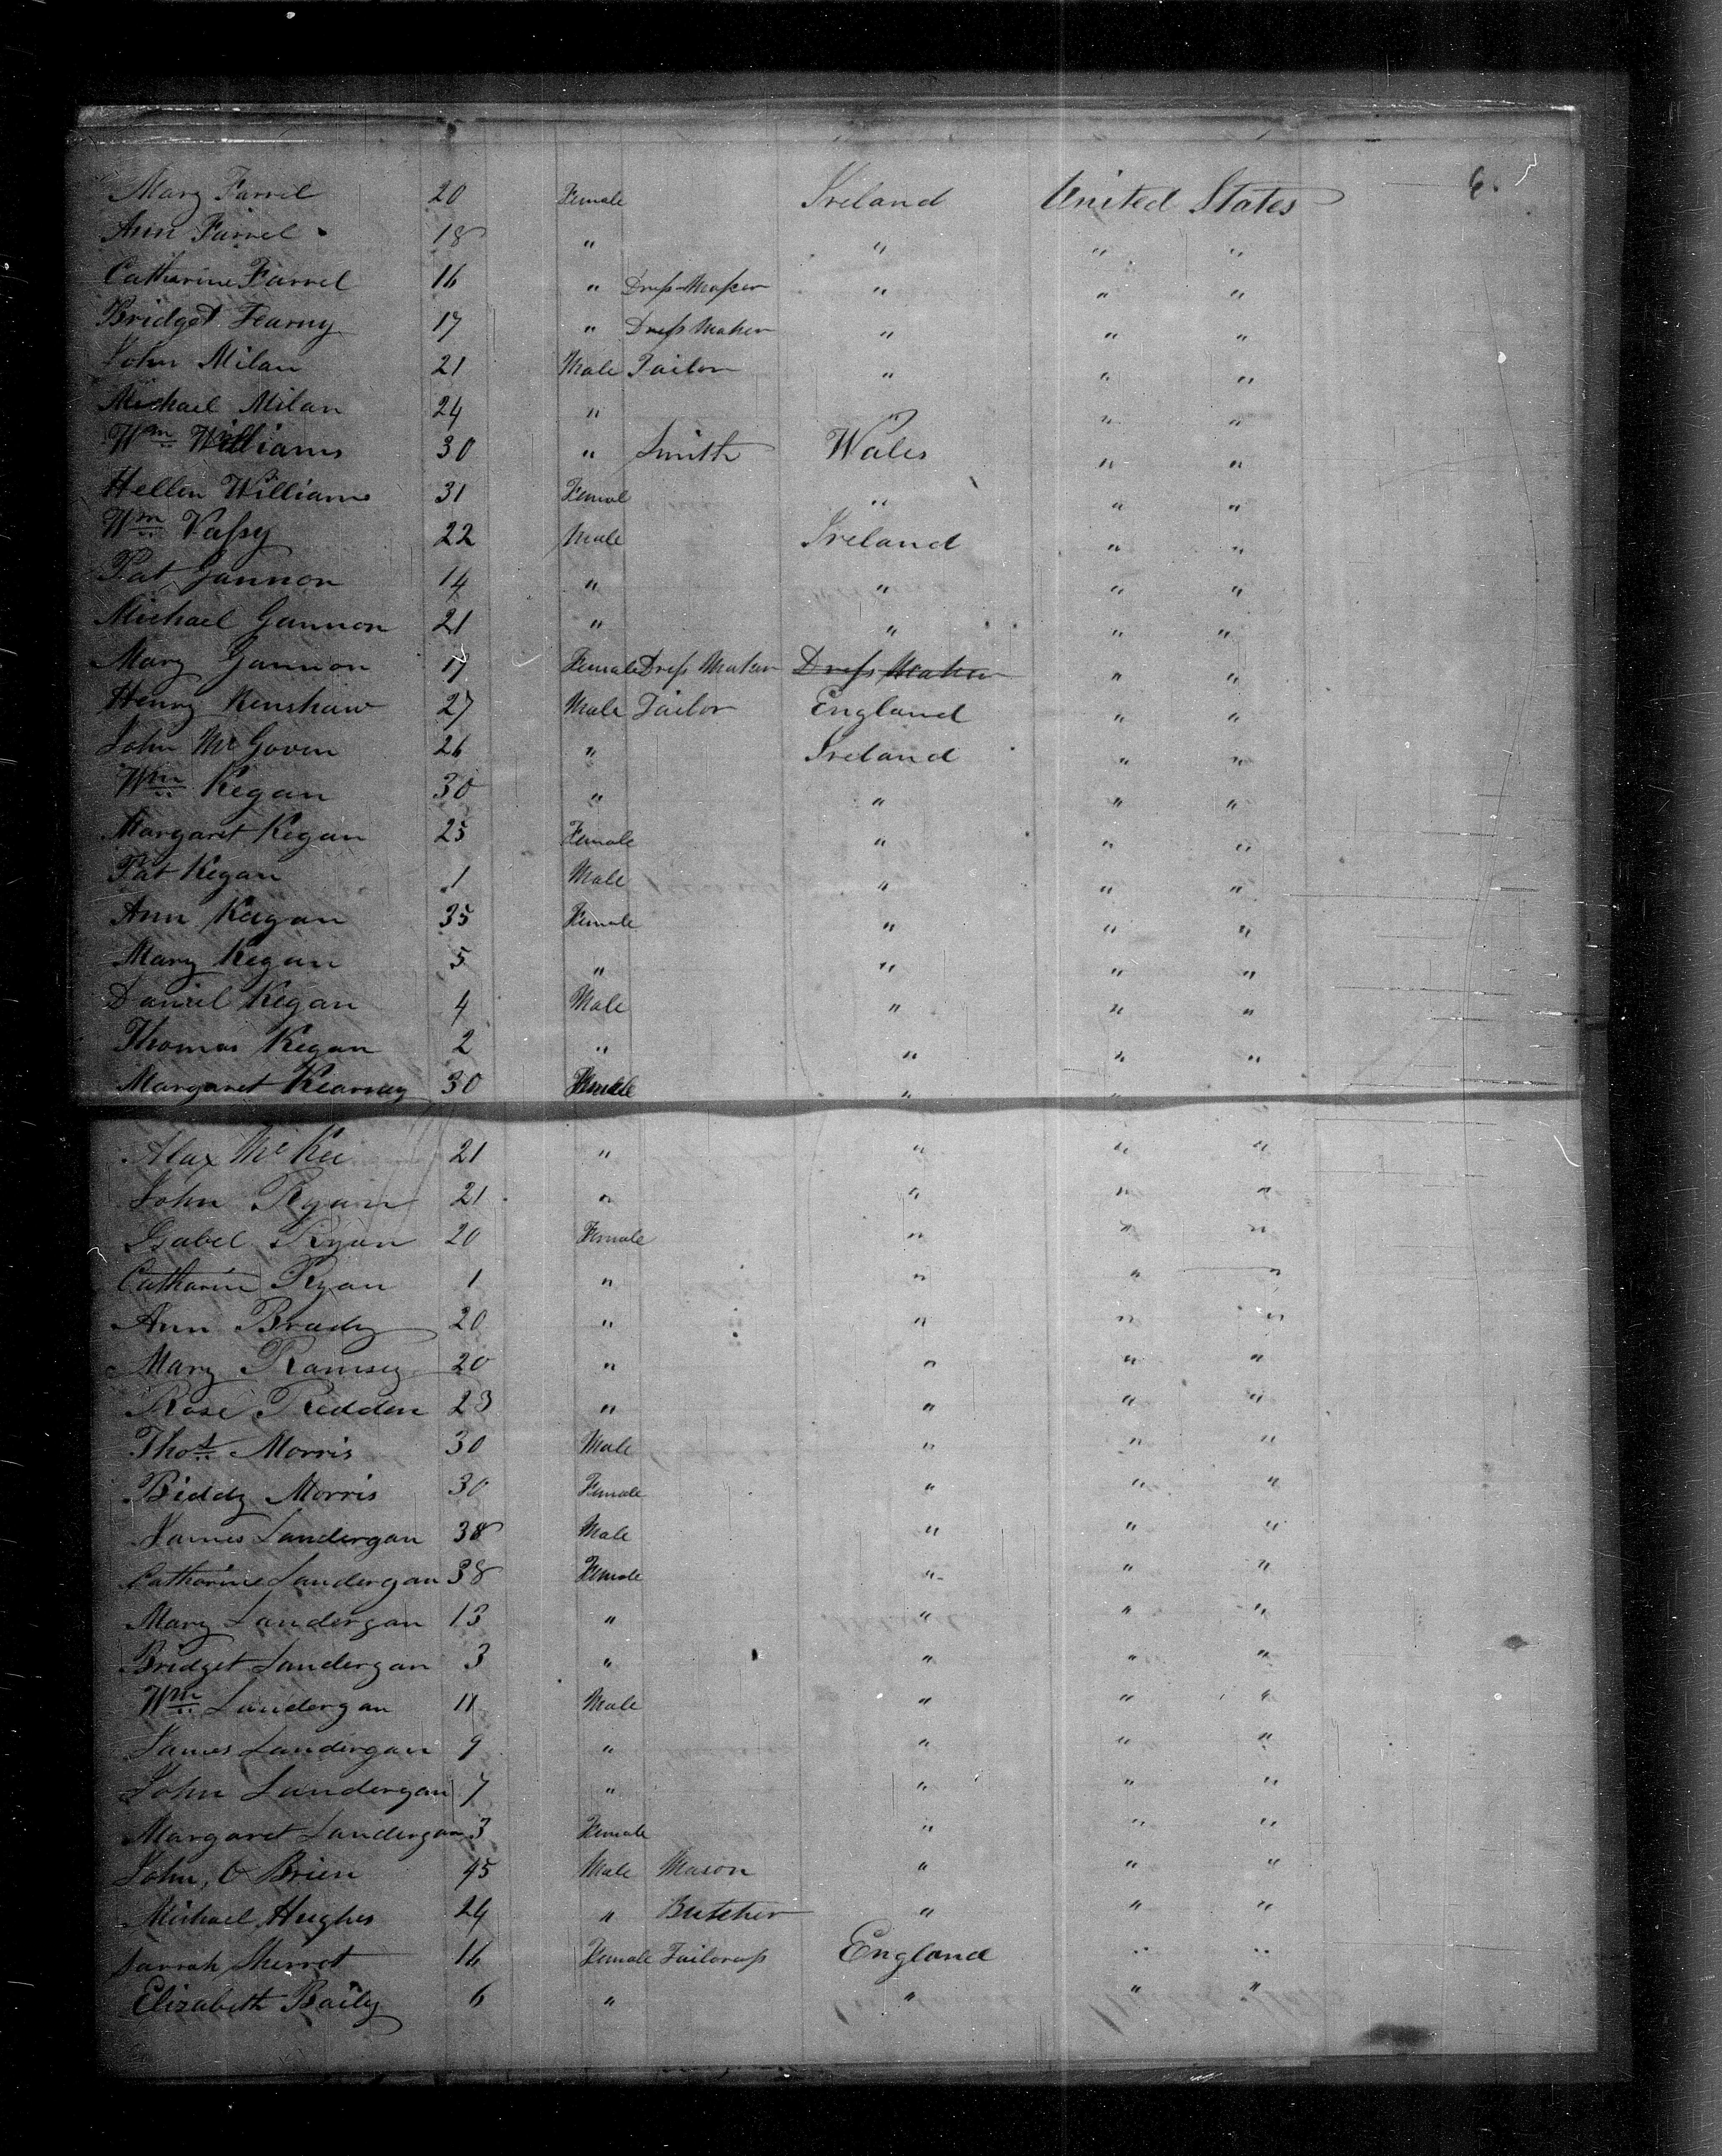 6.
Mary Farrel 20 Female Ireland United States
Ann Farrel 18 " " " "
Catharine Farrel 16 " Dress Maker " " "
Bridget Fearny 17 " Dress Maker " " "
John Milan 21 Male Tailor " " "
Michael Milan 24 " " "
Wm Williams 30 " Smith Wales " "
Hellen Williams 31 Femal " " "
Wm Vassy 22 Male Ireland " "
Pat Gannon 14 " " " "
Michael Gannon 21 " " " "
Mary Gannon 17 Female Dress Maker Dress Maker " "
Henry Renshaw 27 Male Tailor England " "
John McGoven 26 " Ireland " "
Wm Kegan 30 " " " "
Margaret Kegan 25 Female " " "
Pat Kegan 1 Male " " "
Ann Keegan 35 Female " " "
Mary Kegan 5 " " " "
Daniel Kegan 4 Male " " "
Thomas Kegan 2 " " " "
Margaret Kearney 30 Female " "
Alax McKee 21 " " " "
John Ryan 21 " " " "
Isabel Ryan 20 Female " " "
Catharin Ryan 1 " " " "
Ann Brady 20 " " " "
Mary Ramsey 20 " " " "
Rose Redden 23 " " " "
Thos Morris 30 Male " " "
Biddy Morris 30 Female " " "
James Landergan 38 Male " " "
Catharine Landergan 38 Female " " "
Mary Landergan 13 " " " "
Bridget Landergan 3 " " " "
Wm Landergan 11 Male " " "
James Landergan 9 " " " "
John Landergan 7 " " " "
Margaret Landergan 3 Female " " "
John O Brien 45 Male Mason " " "
Michael Hughes 24 " Butcher " " "
Sarrah Sherrot 16 Female Tailoress England " "
Elizabeth Baily 6 " " " "